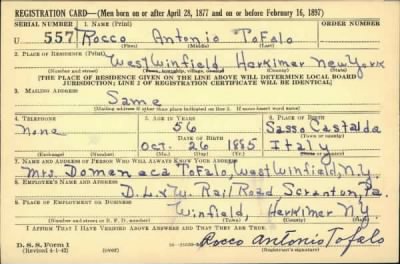 REGISTRATION CARD—(Men born on or after April 28, 1877 and on or before February 16, 1897)
SERIAL NUMBER 1. NAME (Print) ORDER NUMBER
U 557 Rocco Antonio Tofalo
(First) (Middle) (Last)
2. PLACE OF RESIDENCE (Print)
West Winfield, Herkimer New York
(Number and street) (Town, township, village, or city) (County) (State)
[THE PLACE OF RESIDENCE GIVEN ON THE LINE ABOVE WILL DETERMINE LOCAL BOARD
JURISDICTION; LINE 2 OF REGISTRATION CERTIFICATE WILL BE IDENTICAL]
3. MAILING ADDRESS
Same
[Mailing address if other than place indicated on line 2. If same insert word same]
4. TELEPHONE 5. AGE IN YEARS 6. PLACE OF BIRTH
None 56 Sasso Castalda
DATE OF BIRTH
Oct. 26 1885 Italy
7. NAME AND ADDRESS OF PERSON WHO WILL ALWAYS KNOW YOUR ADDRESS
Mrs. Domenaca Tofalo, West Winfield, N.Y.
8. EMPLOYER'S NAME AND ADDRESS
D. L. & W. Rail Road Scranton Pa.
9. PLACE OF EMPLOYMENT OR BUSINESS
Winfield, Herkimer NY
(Number and street or R. F. D. number) (Town) (County) (State)
I AFFIRM THAT I HAVE VERIFIED ABOVE ANSWERS AND THAT THEY ARE TRUE.
D. S. S. Form 1
(Revised 4-1-42) (over)
Rocco Antonio Tofalo
(Registrant's signature)